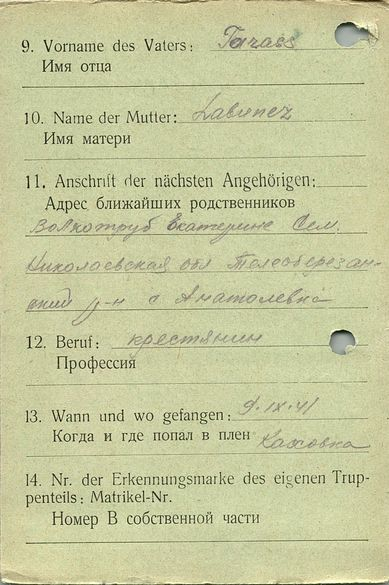 9. Vorname des Vaters: Tarass
Имя отца
10. Name der Mutter: Labunez
Имя матери
11. Anschrift der nächsten Angehörigen:
Адрес ближайших родственников
Волкотруб Екатерине Сем.
Николаевская обл Тилеоберезан-
ский р-н с Анатолевка
12. Beruf: крестянин
Профессия
13. Wann und wo gefangen: 9.IX.41
Когда и где попал в плен Каховка
14. Nr. der Erkennungsmarke des eigenen Trup-
penteils: Matrikel-Nr.
Номер В собственной части